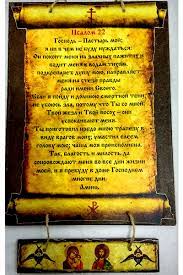 Псалом 22
Господь – Пастырь мой;
я ни в чем не буду нуждаться:
Он покоит меня на злачных пажитях и
водит меня к водам тихим,
подкрепляет душу мою, направляет
меня на стези правды
ради имени Своего.
Если я пойду и долиною смертной тени,
не убоюсь зла, потому что Ты со мной;
Твой жезл и Твой посох – они
успокаивают меня.
Ты приготовил предо мною трапезу в
виду врагов моих; умастил елеем
голову мою; чаша моя преисполнена.
Так, благость и милость да
сопровождают меня во все дни жизни
моей, и я пребуду в доме Господнем
многие дни.
Аминь.